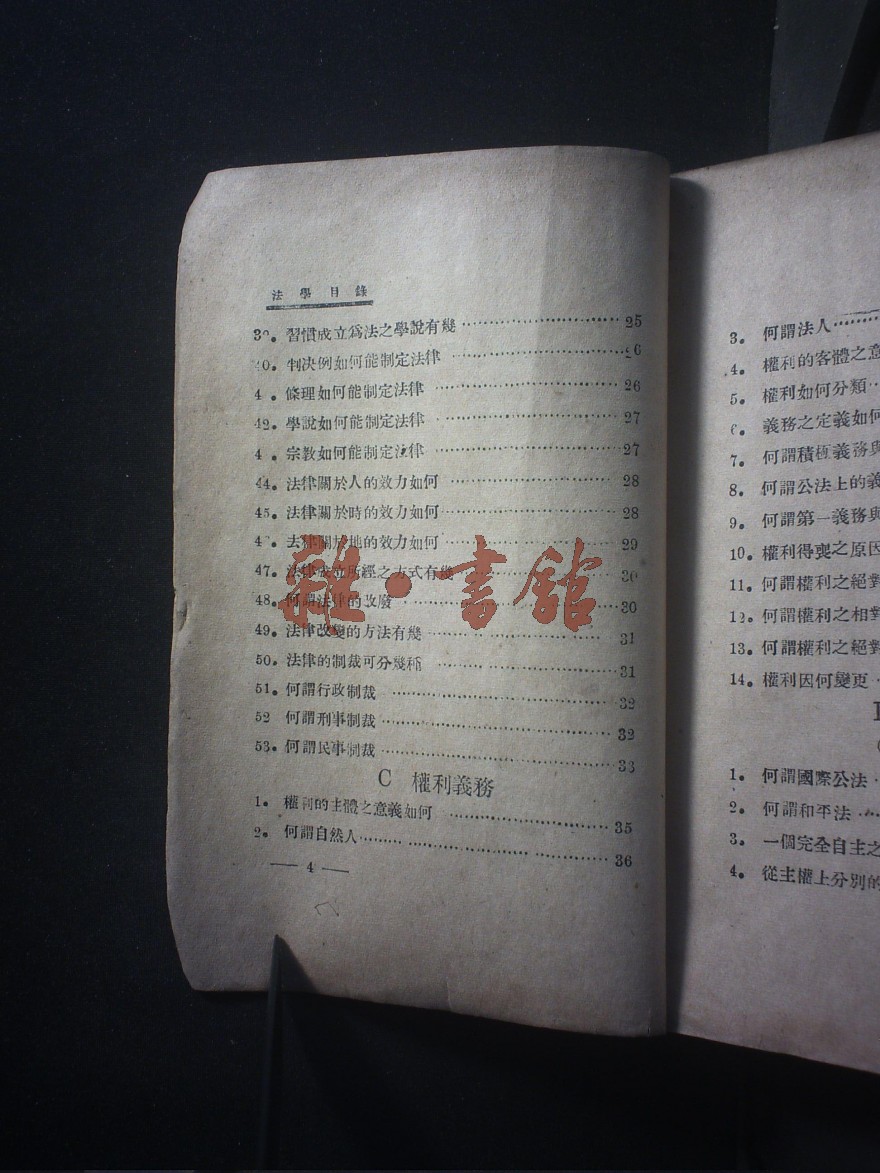 法學目錄
39. 習慣成立爲法之學說有幾 25
40. 判决例如何能制定法律 26
4 . 條理如何能制定法律 26
42. 學說如何能制定法律 27
4 . 宗教如何能制定法律 27
44. 法律關於人的效力如何 28
45. 法律關於時的效力如何 28
4 . 法律關於地的效力如何 29
47. 法律成立所經之方式有幾 30
48. 何謂法律的改廢 30
49. 法律改變的方法有幾 31
50. 法律的制裁可分幾種 31
51. 何謂行政制裁 32
52 何謂刑事制裁 32
53. 何謂民事制裁 33
C 權利義務
1. 權利的主體之意義如何 35
2. 何謂自然人 36
— 4 —
雜·書館
3. 何謂法人
4. 權利的客體之意
5. 權利如何分類
6. 義務之定義如何
7. 何謂積極義務與
8. 何謂公法上的義
9. 何謂第一義務與
10. 權利得喪之原因
11. 何謂權利之絕對
12. 何謂權利之相對
13. 何謂權利之絕對
14. 權利因何變更
1. 何謂國際公法
2. 何謂和平法
3. 一個完全自主之
4. 從主權上分別的